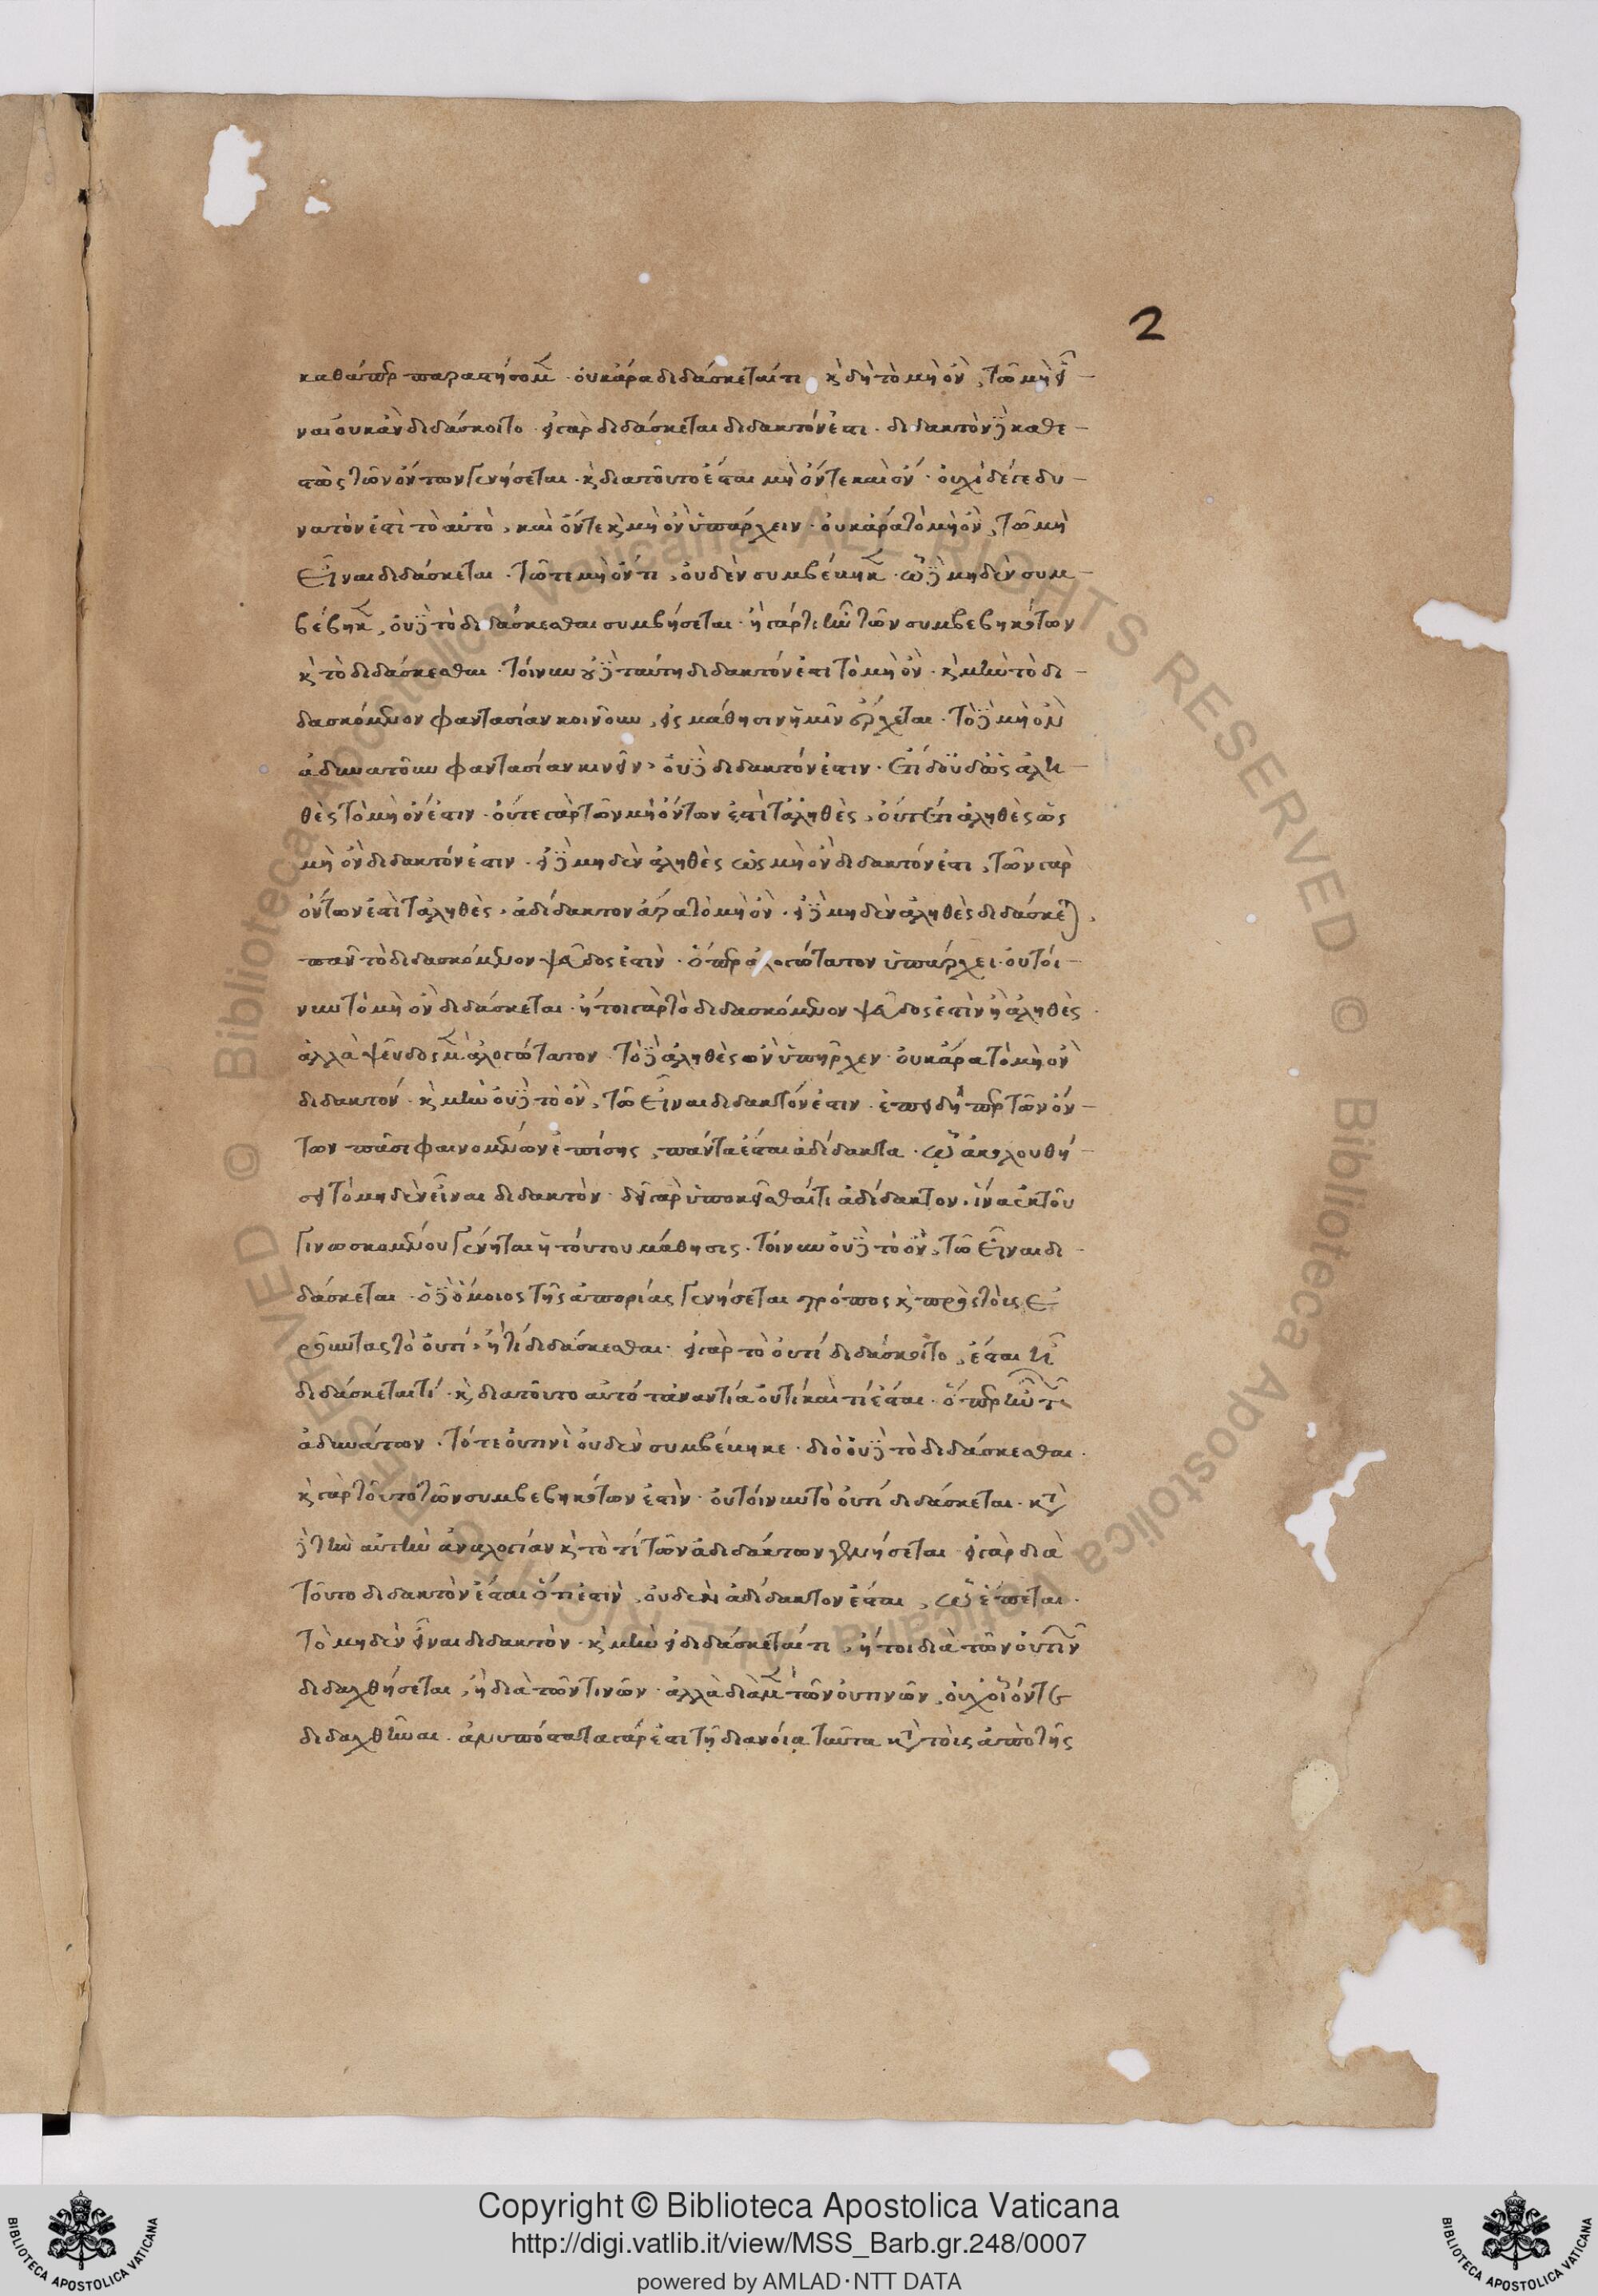 2
καθάπερ παραστήσομεν · οὐκ ἄρα διδάσκεταί τι κ̀ δὴ τὸ μὴ ὂν, τῶ μὴ εἶ-
ναι οὐκ ἂν διδάσκοιτο · εἰ γὰρ διδάσκεται διδακτόν ἐστι · διδακτὸν δὲ καθε-
στὼς τῶν ὄντων γενήσεται · κ̀ διατοῦτο ἔσται μὴ ὄν τε καὶ ὄν · οὐχὶ δέ γε δυ-
νατὸν ἐστὶ τὸ αὐτὸ, καὶ ὄν τε κ̀ μὴ ὂν ὑπάρχειν · οὐκ ἄρα τὸ μὴ ὂν, τῶ μὴ
εἶναι διδάσκεται · τῶ τι μὴ ὄντι, οὐδὲν συμβέβηκε · ὧ δὲ μηδὲν συμ-
βέβηκε, οὐδὲ τὸ διδάσκεσθαι συμβήσεται · ἓν γάρ τι ἦν τῶν συμβεβηκότων
κ̀ τὸ διδάσκεσθαι · τοίνυν οὐδὲ ταύτη διδακτόν ἐστι τὸ μὴ ὂν · κ̀ μὴν τὸ δι-
δασκόμενον φαντασίαν κινοῦν, εἰς μάθησιν ἡμῖν ἔρχεται · τὸ δὲ μὴ ὂν
ἀδυνατοῦν φαντασίαν κινεῖν, οὐδὲ διδακτόν ἐστιν · ἔτι δ' οὐδ' ὡς ἀλη-
θὲς τὸ μὴ ὄν ἐστιν · οὔτε γὰρ τῶν μὴ ὄντων ἐστὶ τἀληθὲς, οὔτ' ἔτι ἀληθὲς ὡς
μὴ ὂν διδακτόν ἐστιν · εἰ δὲ μηδὲν ἀληθὲς ὡς μὴ ὂν διδακτόν ἐστι, τῶν γὰρ
ὄντων ἐστὶ τἀληθὲς, ἀδίδακτον ἄρα τὸ μὴ ὂν · εἰ δὲ μηδὲν ἀληθὲς διδάσκεται,
πᾶν τὸ διδασκόμενον ψεῦδος ἐστὶν · ὅπερ ἀλογώτατον ὑπάρχει · οὐ τοί-
νυν τὸ μὴ ὂν διδάσκεται · ἤτοι γὰρ τὸ διδασκόμενον ψεῦδος ἐστὶν ἢ ἀληθὲς ·
ἀλλὰ ψεῦδος μὲν ἀλογώτατον · τὸ δὲ ἀληθὲς ὂν ὑπῆρχεν · οὐκ ἄρα τὸ μὴ ὂν
διδακτόν · κ̀ μὴν οὐδὲ τὸ ὂν, τῶ εἶναι διδακτόν ἐστιν · ἐπειδήπερ τῶν ὄν-
των πᾶσι φαινομένων ἐπίσης, πάντα ἔσται ἀδίδακτα · ὧ ἀκολουθή-
σει τὸ μηδὲν εἶναι διδακτὸν · δεῖ γὰρ ὑποκεῖσθαί τι ἀδίδακτον · ἵνα ἐκ τοῦ
γινωσκομένου γένηται ἡ τούτου μάθησις · τοίνυν οὐδὲ τὸ ὂν, τῶ εἶναι δι-
δάσκεται · ὁ δὲ ὅμοιος τῆς ἀπορίας γενήσεται τρόπος κ̀ πρὸς τοὺς ἐ
ροῦντας τὸ οὔτι, ἢ τί διδάσκεσθαι · εἰ γὰρ τὸ οὔτι διδάσκοιτο, ἔσται ἧ
διδάσκεται τί · κ̀ διατοῦτο αὐτό τἀναντία οὔτι καὶ τί ἔσται · ὅπερ ἦν τῶν
ἀδυνάτων · τό τε οὔτινι οὐδὲν συμβέβηκε · διὸ οὐδὲ τὸ διδάσκεσθαι ·
κ̀ γὰρ τοῦτο τῶν συμβεβηκότων ἐστὶν · οὐ τοίνυν τὸ οὔτι διδάσκεται · κατὰ
δὲ τὴν αὐτὴν ἀναλογίαν κ̀ τὸ τί τῶν ἀδιδάκτων γενήσεται · εἰ γὰρ διὰ
τοῦτο διδακτὸν ἔσται ὅτι ἐστὶν, οὐδὲν ἀδίδακτον ἔσται, ὧ ἕπεται ·
τὸ μηδὲν εἶναι διδακτὸν · κ̀ μὴν εἰ διδάσκεταί τι, ἤτοι διὰ τῶν οὐτινῶν
διδαχθήσεται, ἢ διὰ τῶν τινῶν · ἀλλὰ διὰ μὲν τῶν οὐτινῶν, οὐχ οἷόν τε
διδαχθῆναι · ἀνυπόστατα γάρ ἐστι τῆ διανοία ταῦτα κατὰ τοὺς ἀπὸ τῆς
Copyright © Biblioteca Apostolica Vaticana
http://digi.vatlib.it/view/MSS_Barb.gr.248/0007
powered by AMLAD·NTT DATA